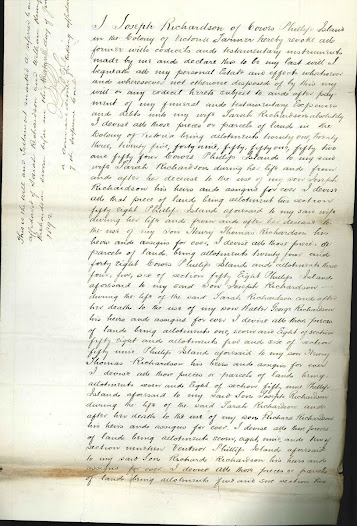 I Joseph Richardson of Cowes Phillip Island
in the Colony of Victoria Farmer hereby revoke all
former wills codicils and testamentary instruments
made by me and declare this to be my last will I
bequeath all my personal Estate and effects whatsoever
and wheresoever not otherwise disposed of by this my
will or any codicil hereto subject to and after pay
ment of my funeral and testamentary expenses
and debts unto my wife Sarah Richardson absolutely
I devise all those pieces or parcels of land in the
Colony of Victoria being allotments twenty one, twenty
three, twenty five, forty nine, fifty, fifty one, fifty two
and fifty four Cowes Phillip Island to my said
wife Sarah Richardson during her life and from
and after her decease to the use of my son Joseph
Richardson his heirs and assigns for ever I devise
all that piece of land being allotment six section
fifty eight Phillip Island aforesaid to my said wife
during her life and from and after her decease to
the use of my son Henry Thomas Richardson his
heirs and assigns for ever, I devise all those pieces or
parcels of land being allotments twenty four and
forty eight Cowes Phillip Island and allotments three
four, five, six of section fifty Eight Phillip Island
aforesaid to my said Son Joseph Richardson
during the life of the said Sarah Richardson and after
her death to the use of my son Walter George Richardson
his heirs and assigns for ever I devise all those pieces
of land being allotments one, seven and Eight of section
fifty eight and allotments five and six of section
fifty nine Phillip Island aforesaid to my son Henry
Thomas Richardson his heirs and assigns for ever
I devise all those pieces or parcels of land being
allotments seven and Eight of section fifty nine Phillip
Island aforesaid to my said Son Joseph Richardson
during the life of the said Sarah Richardson and
after her death to the use of my son Richard Richardson
his heirs and assigns for ever I devise all those pieces
of land being allotments seven, eight, nine and ten of
section nineteen Ventnor Phillip Island aforesaid
to my said Son Richard Richardson his heirs and
assigns for ever I devise all those pieces or parcels
of land being allotments five and six section two
This is the will and Testament marked
affidavit of Sarah Richardson and William